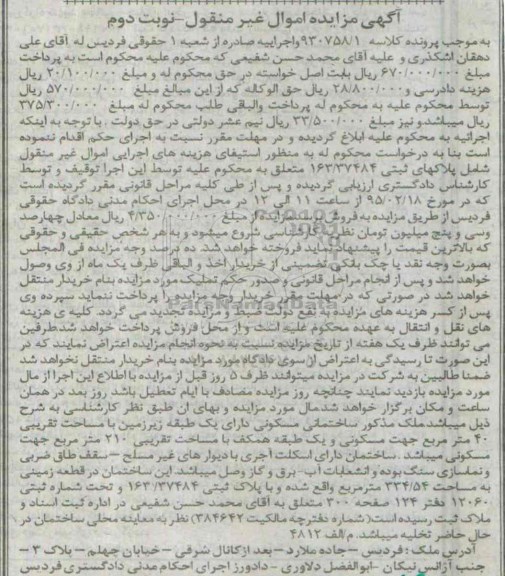 آگهی مزایده اموال غیر منقول-نوبت دوم
به موجب پرونده کلاسه ۹۳۰۷۵۸/۱ واجراییه صادره از شعبه ۱ حقوقی فردیس له آقای علی
دهقان اشکذری و علیه آقای محمد حسن شفیعی که محکوم علیه محکوم است به پرداخت
مبلغ ۶۷۰/۰۰۰/۰۰۰ ریال بابت اصل خواسته در حق محکوم له و مبلغ ۲۰/۱۰۰/۰۰۰ ریال
هزینه دادرسی و ۲۸/۸۰۰/۰۰۰ ریال حق الوکاله که از این مبالغ مبلغ ۵۷۰/۰۰۰/۰۰۰ ریال
توسط محکوم علیه به محکوم له پرداخت والباقی طلب محکوم له مبلغ ۳۷۵/۳۰۰/۰۰۰
ریال میباشد و نیز مبلغ ۳۳/۵۰۰/۰۰۰ ریال نیم عشر دولتی در حق دولت . با توجه به اینکه
اجرائیه به محکوم علیه ابلاغ گردیده و در مهلت مقرر نسبت به اجرای حکم اقدام ننموده
است بنا به درخواست محکوم له به منظور استیفای هزینه های اجرایی اموال غیر منقول
شامل پلاکهای ثبتی ۱۶۳/۳۷۴۸۴ متعلق به محکوم علیه توسط این اجرا توقیف و توسط
کارشناس دادگستری ارزیابی گردیده و پس از طی کلیه مراحل قانونی مقرر گردیده است
که در مورخ ۹۵/۰۲/۱۸ از ساعت ۱۱ الی ۱۲ در محل اجرای احکام مدنی دادگاه حقوقی
فردیس از طریق مزایده به فروش برسد مزایده از مبلغ ۴/۳۵۰/۰۰۰/۰۰۰ ریال معادل چهارصد
وسی و پنج میلیون تومان نظریه کارشناسی شروع میشود و به هر شخص حقیقی و حقوقی
که بالاترین قیمت را پیشنهاد نماید فروخته خواهد شد. ده درصد وجه مزایده فی المجلس
بصورت وجه نقد یا چک بانکی تضمینی از خریدار اخذ و الباقی ظرف یک ماه از وی وصول
خواهد شد و پس از انجام مراحل قانونی و صدور حکم تملیک مورد مزایده بنام خریدار منتقل
خواهد شد در صورتی که در مهلت مقرر خریدار وجه مزایده را پرداخت ننماید سپرده وی
پس از کسر هزینه های مزایده به نفع دولت ضبط و مزایده تجدید می گردد. کلیه ی هزینه
های نقل و انتقال به عهده محکوم علیه است و از محل فروش پرداخت خواهد شد طرفین
می توانند ظرف یک هفته از تاریخ مزایده نسبت به نحوه انجام مزایده اعتراض نمایند که در
این صورت تا رسیدگی به اعتراض از سوی دادگاه مورد مزایده بنام خریدار منتقل نخواهد شد
ضمنا طالبین به شرکت در مزایده میتوانند ظرف ۵ روز قبل از مزایده با اطلاع این اجرا از مال
مورد مزایده بازدید نمایند چنانچه روز مزایده مصادف با ایام تعطیل باشد روز بعد در همان
ساعت و مکان برگزار خواهد شد مال مورد مزایده و بهای ان طبق نظر کارشناسی به شرح
ذیل میباشد ملک مذکور ساختمانی مسکونی دارای یک طبقه زیرزمین با مساحت تقریبی
۴۰ متر مربع جهت مسکونی و یک طبقه همکف با مساحت تقریبی ۲۱۰ متر مربع جهت
مسکونی میباشد .ساختمان دارای اسکلت آجری با دیوار های غیر مسلح – سقف طاق ضربی
و نماسازی سنگ بوده و انشعابات آب- برق و گاز وصل میباشد. این ساختمان در قطعه زمینی
به مساحت ۳۳۴/۵۴ مترمربع واقع شده و با پلاک ثبتی ۱۶۳/۳۷۴۸۴ و تحت شماره ثبتی
۱۲۰۶۰ دفتر ۱۲۴ صفحه ۳۰۰ متعلق به آقای محمد حسن شفیعی در اداره ثبت اسناد و
ملاک ثبت رسیده است( شماره دفترچه مالکیت ۳۸۴۶۴۲) نظر به معاینه محلی ساختمان در
حال حاضر تخلیه میباشد. م الف ۴۸۱۲
آدرس ملک : فردیس – جاده ملارد – بعد از کانال شرقی – خیابان چهلم – پلاک ۳ –
جنب آژانس نیکان -ابوالفضل دلاوری - دادورز اجرای احکام مدنی دادگستری فردیس